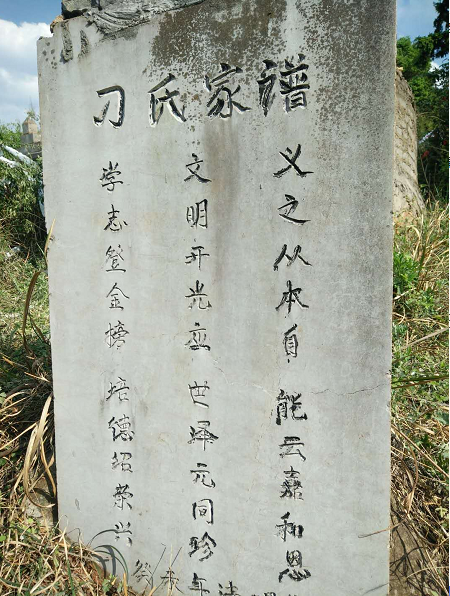 刁氏家谱
义之从本自 能云嘉和恩
文明开光应 世泽元同珍
学志登金榜 培德绍荣兴
癸未年清